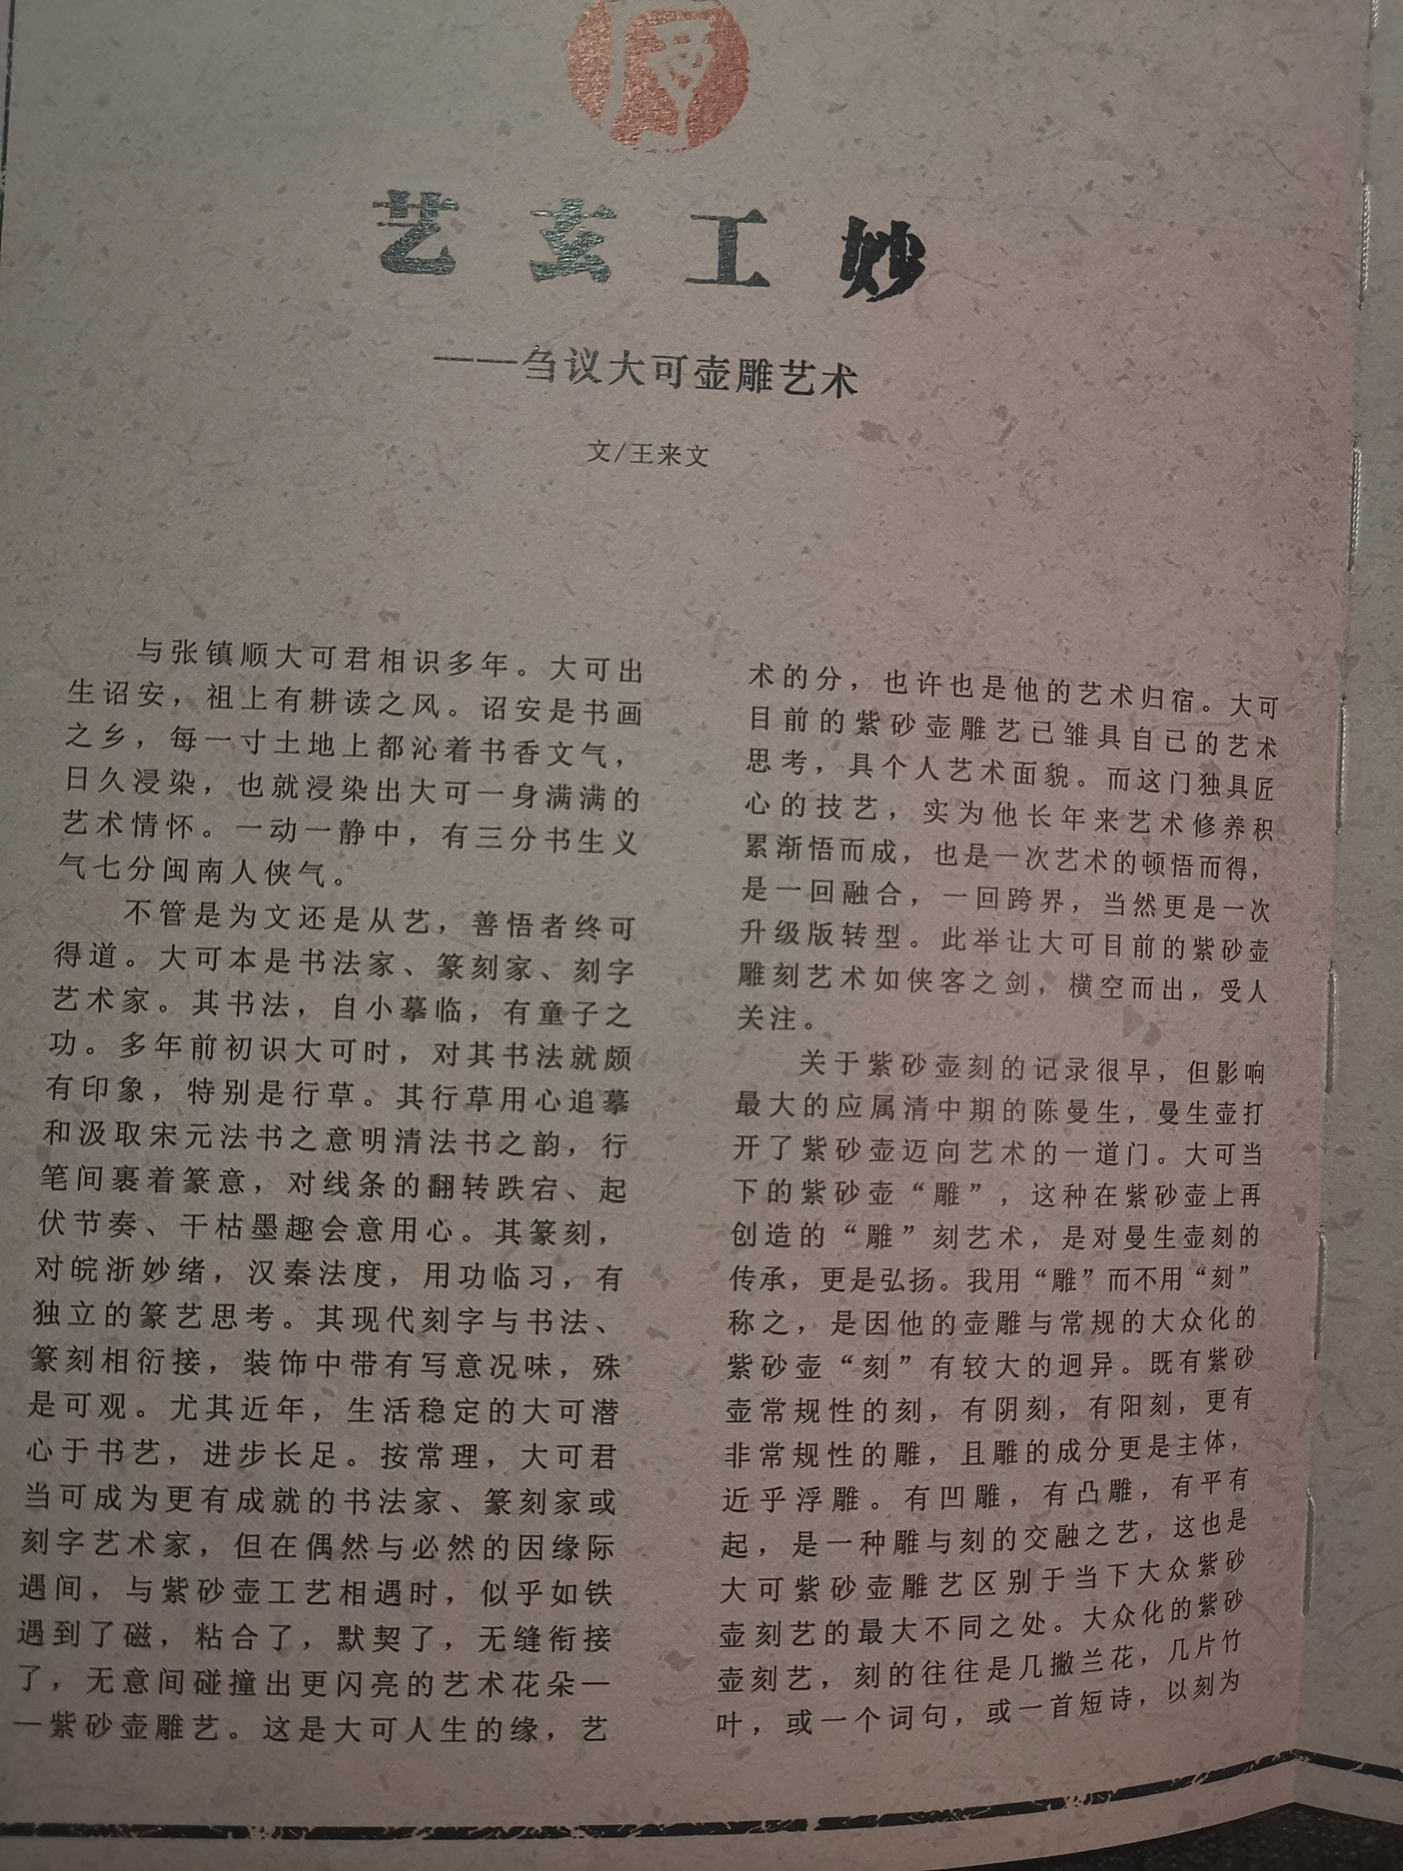 艺玄工妙
——刍议大可壶雕艺术
文/王来文
与张镇顺大可君相识多年。大可出
生诏安，祖上有耕读之风。诏安是书画
之乡，每一寸土地上都沁着书香文气，
日久浸染，也就浸染出大可一身满满的
艺术情怀。一动一静中，有三分书生义
气七分闽南人侠气。
不管是为文还是从艺，善悟者终可
得道。大可本是书法家、篆刻家、刻字
艺术家。其书法，自小摹临，有童子之
功。多年前初识大可时，对其书法就颇
有印象，特别是行草。其行草用心追摹
和汲取宋元法书之意明清法书之韵，行
笔间裹着篆意，对线条的翻转跌宕、起
伏节奏、干枯墨趣会意用心。其篆刻，
对皖浙妙绪，汉秦法度，用功临习，有
独立的篆艺思考。其现代刻字与书法、
篆刻相衍接，装饰中带有写意况味，殊
是可观。尤其近年，生活稳定的大可潜
心于书艺，进步长足。按常理，大可君
当可成为更有成就的书法家、篆刻家或
刻字艺术家，但在偶然与必然的因缘际
遇间，与紫砂壶工艺相遇时，似乎如铁
遇到了磁，粘合了，默契了，无缝衔接
了，无意间碰撞出更闪亮的艺术花朵—
—紫砂壶雕艺。这是大可人生的缘，艺
术的分，也许也是他的艺术归宿。大可
目前的紫砂壶雕艺已雏具自己的艺术
思考，具个人艺术面貌。而这门独具匠
心的技艺，实为他长年来艺术修养积
累渐悟而成，也是一次艺术的顿悟而得，
是一回融合，一回跨界，当然更是一次
升级版转型。此举让大可目前的紫砂壶
雕刻艺术如侠客之剑，横空而出，受人
关注。
关于紫砂壶刻的记录很早，但影响
最大的应属清中期的陈曼生，曼生壶打
开了紫砂壶迈向艺术的一道门。大可当
下的紫砂壶“雕”，这种在紫砂壶上再
创造的“雕”刻艺术，是对曼生壶刻的
传承，更是弘扬。我用“雕”而不用“刻”
称之，是因他的壶雕与常规的大众化的
紫砂壶“刻”有较大的迥异。既有紫砂
壶常规性的刻，有阴刻，有阳刻，更有
非常规性的雕，且雕的成分更是主体，
近乎浮雕。有凹雕，有凸雕，有平有
起，是一种雕与刻的交融之艺，这也是
大可紫砂壶雕艺区别于当下大众紫砂
壶刻艺的最大不同之处。大众化的紫砂
壶刻艺，刻的往往是几撇兰花，几片竹
叶，或一个词句，或一首短诗，以刻为